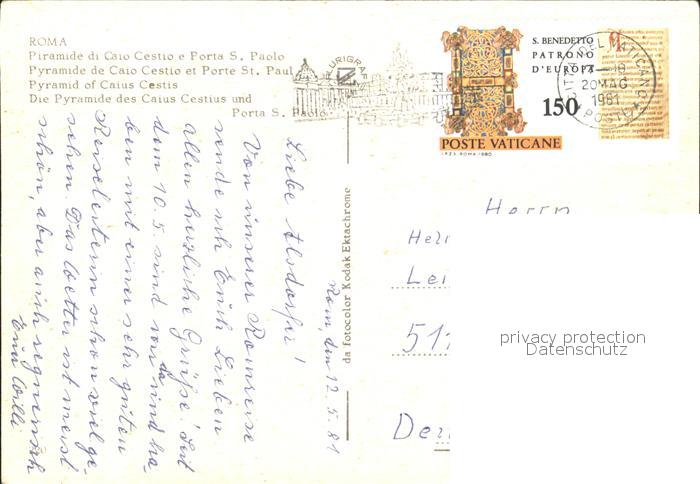 ROMA
Piramide di Caio Cestio e Porta S. Paolo
Pyramide de Caio Cestio et Porte St. Paul
Pyramid of Caius Cestis
Die Pyramide des Caius Cestius und
Porta S. Paolo
S. BENEDETTO
PATRONO
D'EUROPA
150
POSTE VATICANE
I.P.Z.S. ROMA-1980
20 MAG
1981
POSTE
da fotocolor Kodak Ektachrome
Rom, den 12.5.81
Liebe Alsdorfer!
Von unserer Romreise
sende ich Euch Lieben
allen herzliche Grüße! Seit
dem 10.5. sind wir da und ha-
ben mit einer sehr guten
Reiseleiterin schon viel ge-
sehen. Das Wetter ist meist
schön, aber auch regnerisch
Eure Willi
Herrn
Lei
51
privacy protection
Datenschutz